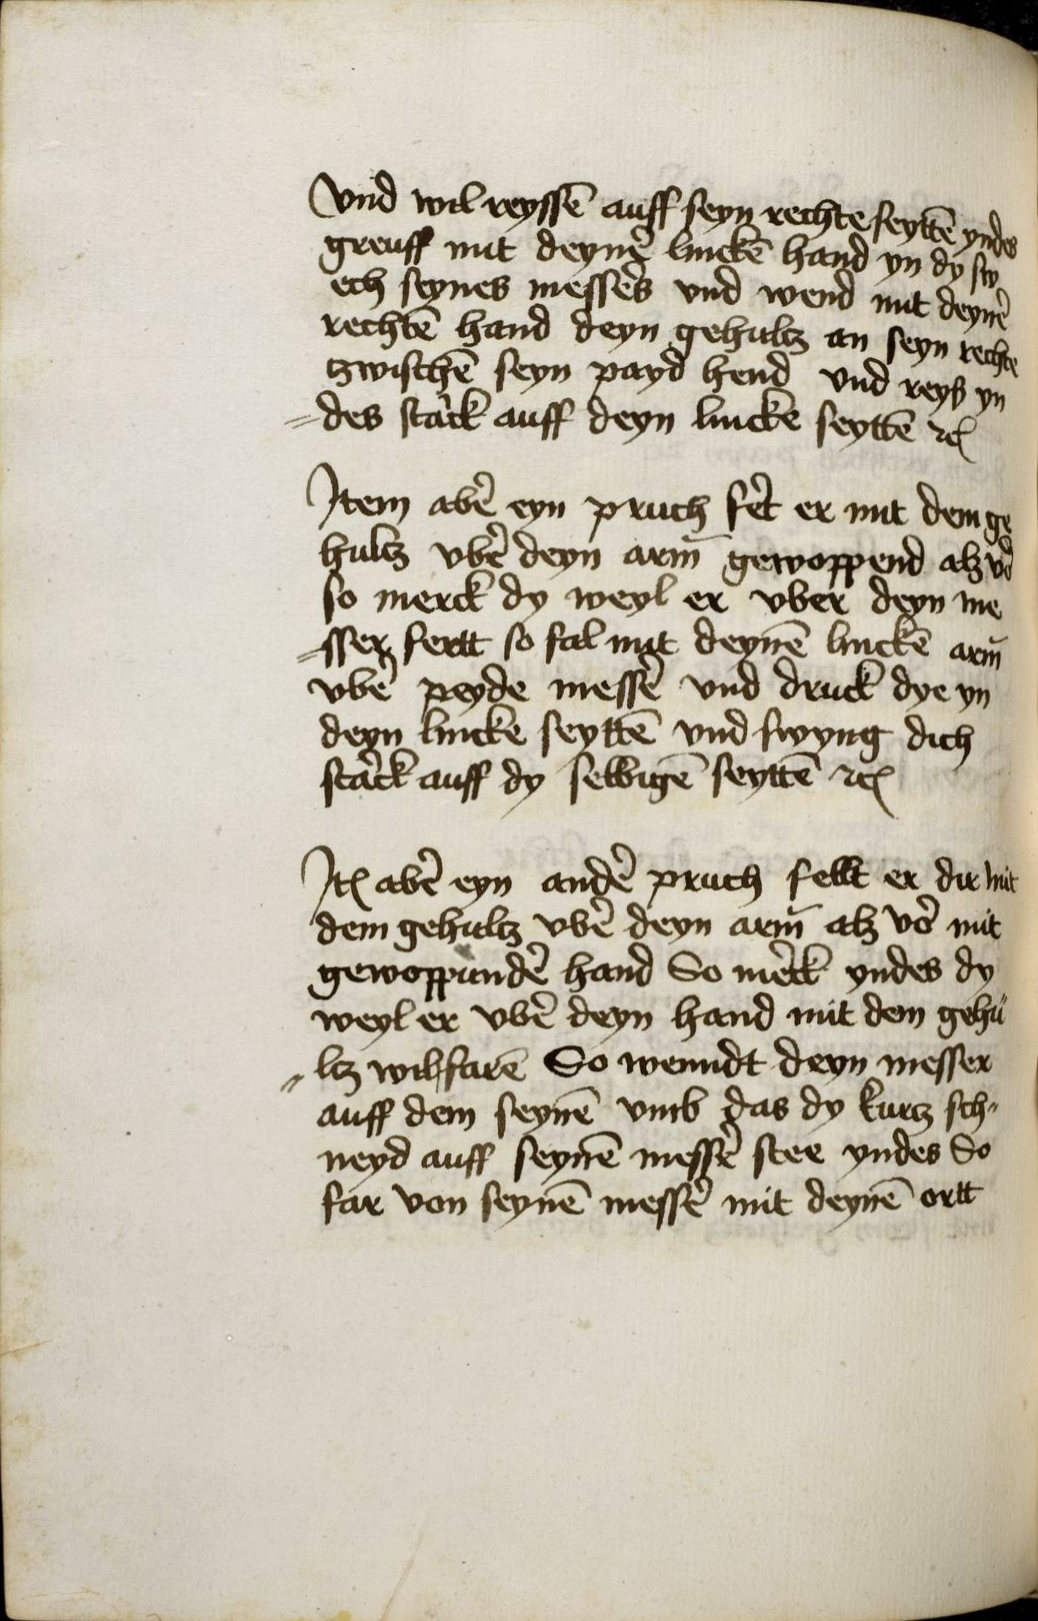 Vnd wil reyssē auff seyn rechte seyttē yndes
greuff mit deynē linckē hand yn dy sw
ech seynes messers vnd wend mit deynē
rechtē hand deyn gehultz an seyn rechte
tzwischē seyn payd hend vnd reyß yn
=des starck auff deyn lincke seyttē ꝛc
Item abē eyn pruch fert er mit dem ge
hultz vbē deyn arm̄ gewoppend alz vō
so merck dy weyl er vber deyn me
=sser fertt so fal mit deynē linckē arm̄
vbē peyde messē vnd druck dye yn
deyn lincke seyttē vnd swyng dich
starck auff dy selbigē seyttē ꝛc
Itꝫ abē eyn andē pruch fellt er dir mit
dem gehultz vbē deyn arm̄ alz vō mit
gewoppundē hand So merck yndes dy
weyl er vbē deyn hand mit dem gehu
=ltz wil farē So wenndt deyn messer
auff dem seynē vmb das dy kurtz sch=
neyd auff seynē messē stee yndes So
far von seynē messē mit deynē ortt